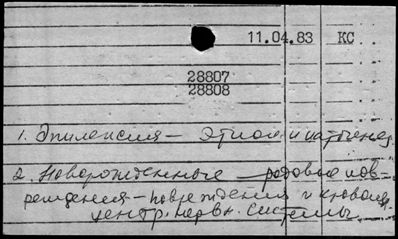 11.04.83 КС
28807
28808
1. Эпилепсия — этиол. и патогенез
2. Новорожденные — родовые пов-
реждения — повреждения и кровоизл.
центр. нервн. системы